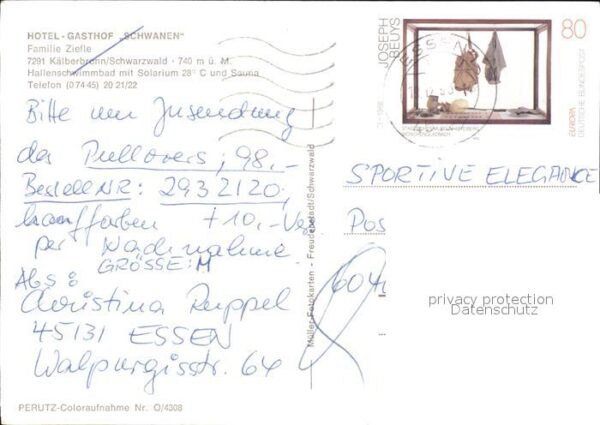 HOTEL - GASTHOF „SCHWANEN"
Familie Ziefle
7291 Kälberbronn/Schwarzwald · 740 m ü. M.
Hallenschwimmbad mit Solarium 28° C und Sauna
Telefon (0 74 45) 20 21/22
Bitte um Zusendung
des Pullovers, 98,-
Bestell NR: 2932120,
hanffarben + 10,- Ve
per Nachnahme
GRÖSSE: M
Abs:
Christina Ruppel
45131 ESSEN
Walpurgisstr. 64
PERUTZ-Coloraufnahme Nr. O/4308
Müller-Fotokarten - Freudenstadt/Schwarzwald
ESSEN
JOSEPH
BEUYS
80
DEUTSCHE BUNDESPOST
SPORTIVE ELEGANCE
Pos
604
privacy protection
Datenschutz